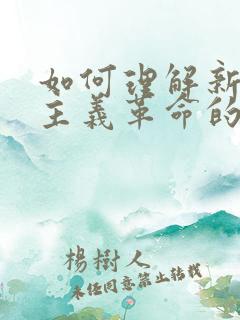 如何理解新
主義革命的
楊樹人
未经同意禁止转载